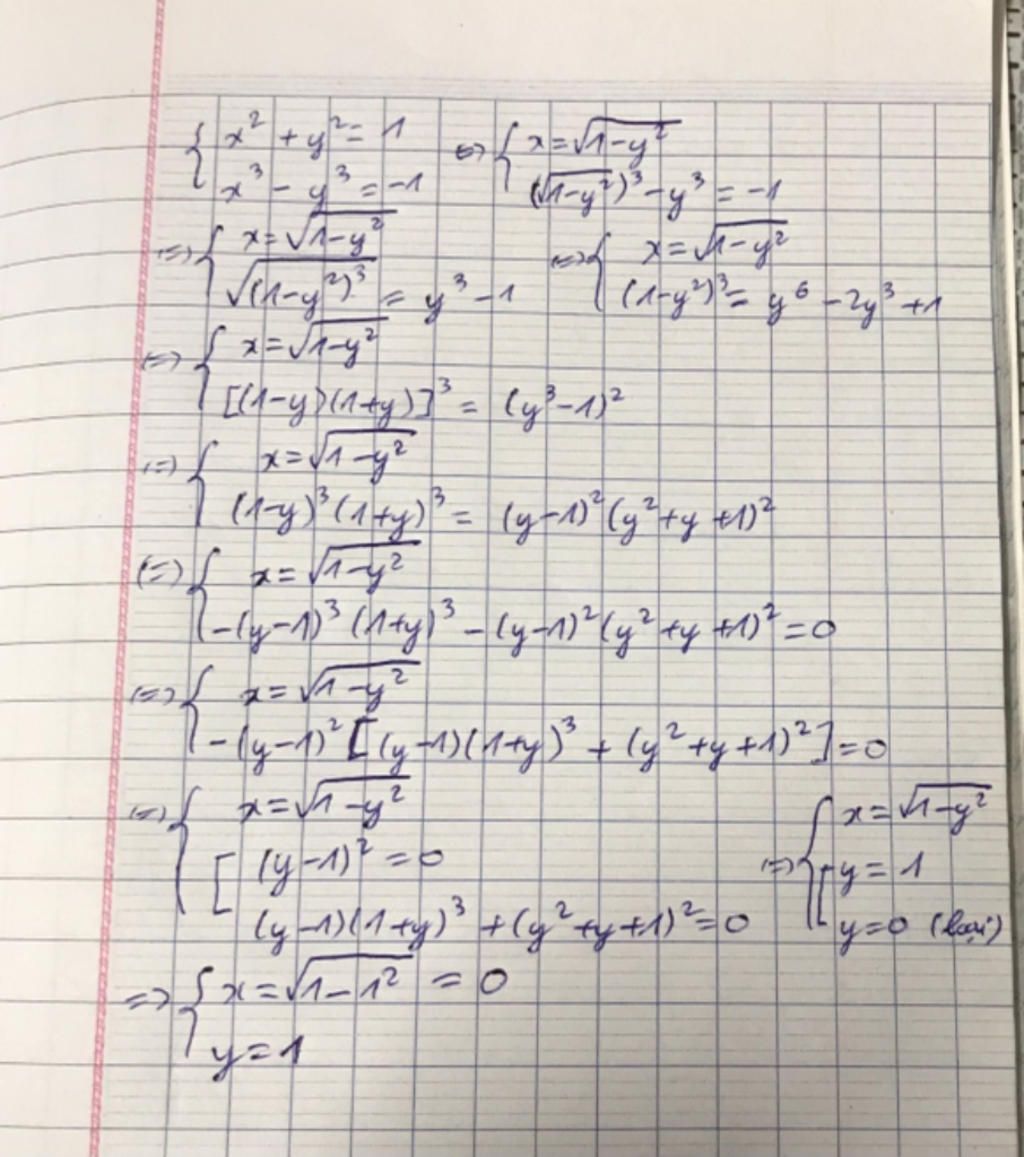 { x² + y² = 1 <=> { x = √(1-y²)
x³ - y³ = -1 (√(1-y²))³ - y³ = -1
<=> { x = √(1-y²) <=> { x = √(1-y²)
√((1-y²)³) = y³ - 1 (1-y²)³ = y⁶ - 2y³ + 1
<=> { x = √(1-y²)
[(1-y)(1+y)]³ = (y³-1)²
<=> { x = √(1-y²)
(1-y)³(1+y)³ = (y-1)²(y²+y+1)²
<=> { x = √(1-y²)
-(y-1)³(1+y)³ - (y-1)²(y²+y+1)² = 0
<=> { x = √(1-y²)
-(y-1)²[(y-1)(1+y)³ + (y²+y+1)²] = 0
<=> { x = √(1-y²) <=> { x = √(1-y²)
[ (y-1)² = 0 [ y = 1
(y-1)(1+y)³ + (y²+y+1)² = 0 y = 0 (loại)
=> { x = √(1-1²) = 0
y = 1